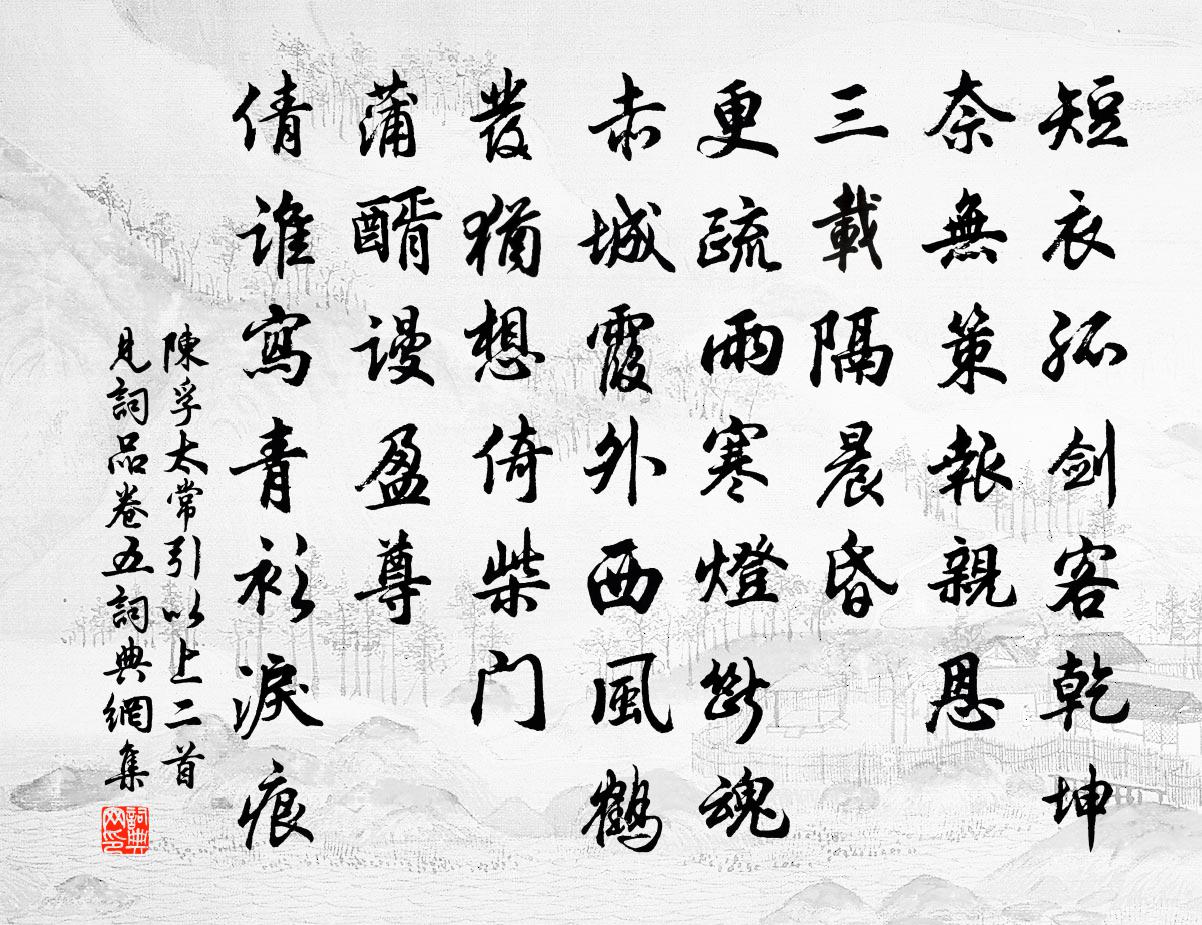 短衣孤劍客乾坤
奈無策報親恩
三載隔晨昏
更疏雨寒燈斷魂
赤城霞外西風鶴
髮猶想倚柴門
蒲醑謾盈尊
倩誰寫青衫淚痕
陳孚太常引以上二首
見詞品卷五詞典網集
詞典
网印